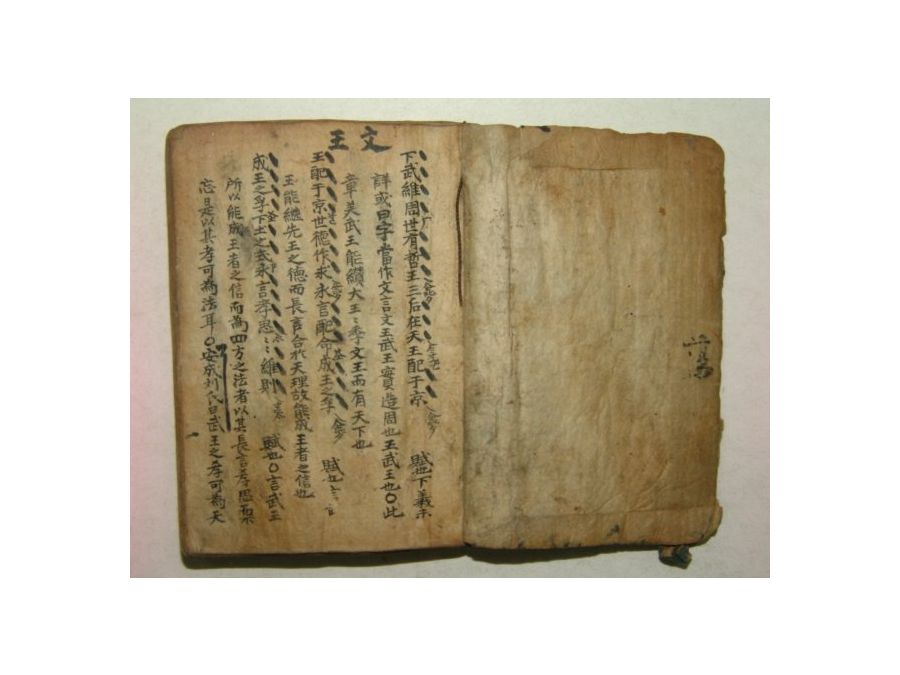 文王
下武維周世有哲王三后在天王配于京 賦也下義未
詳或曰字當作文言文王武王實造周也王武王也〇此
章美武王能纘大王〻季文王而有天下也
王配于京世德作求永言配命成王之孚 賦也言
王能繼先王之德而長言合於天理故能成王者之信也
成王之孚下土之式永言孝思〻維則 賦也〇言武王
所以能成王者之信而為四方之法者以其長言孝思而
忘是以其孝可為法耳〇安成刘氏曰武王之孝可為天